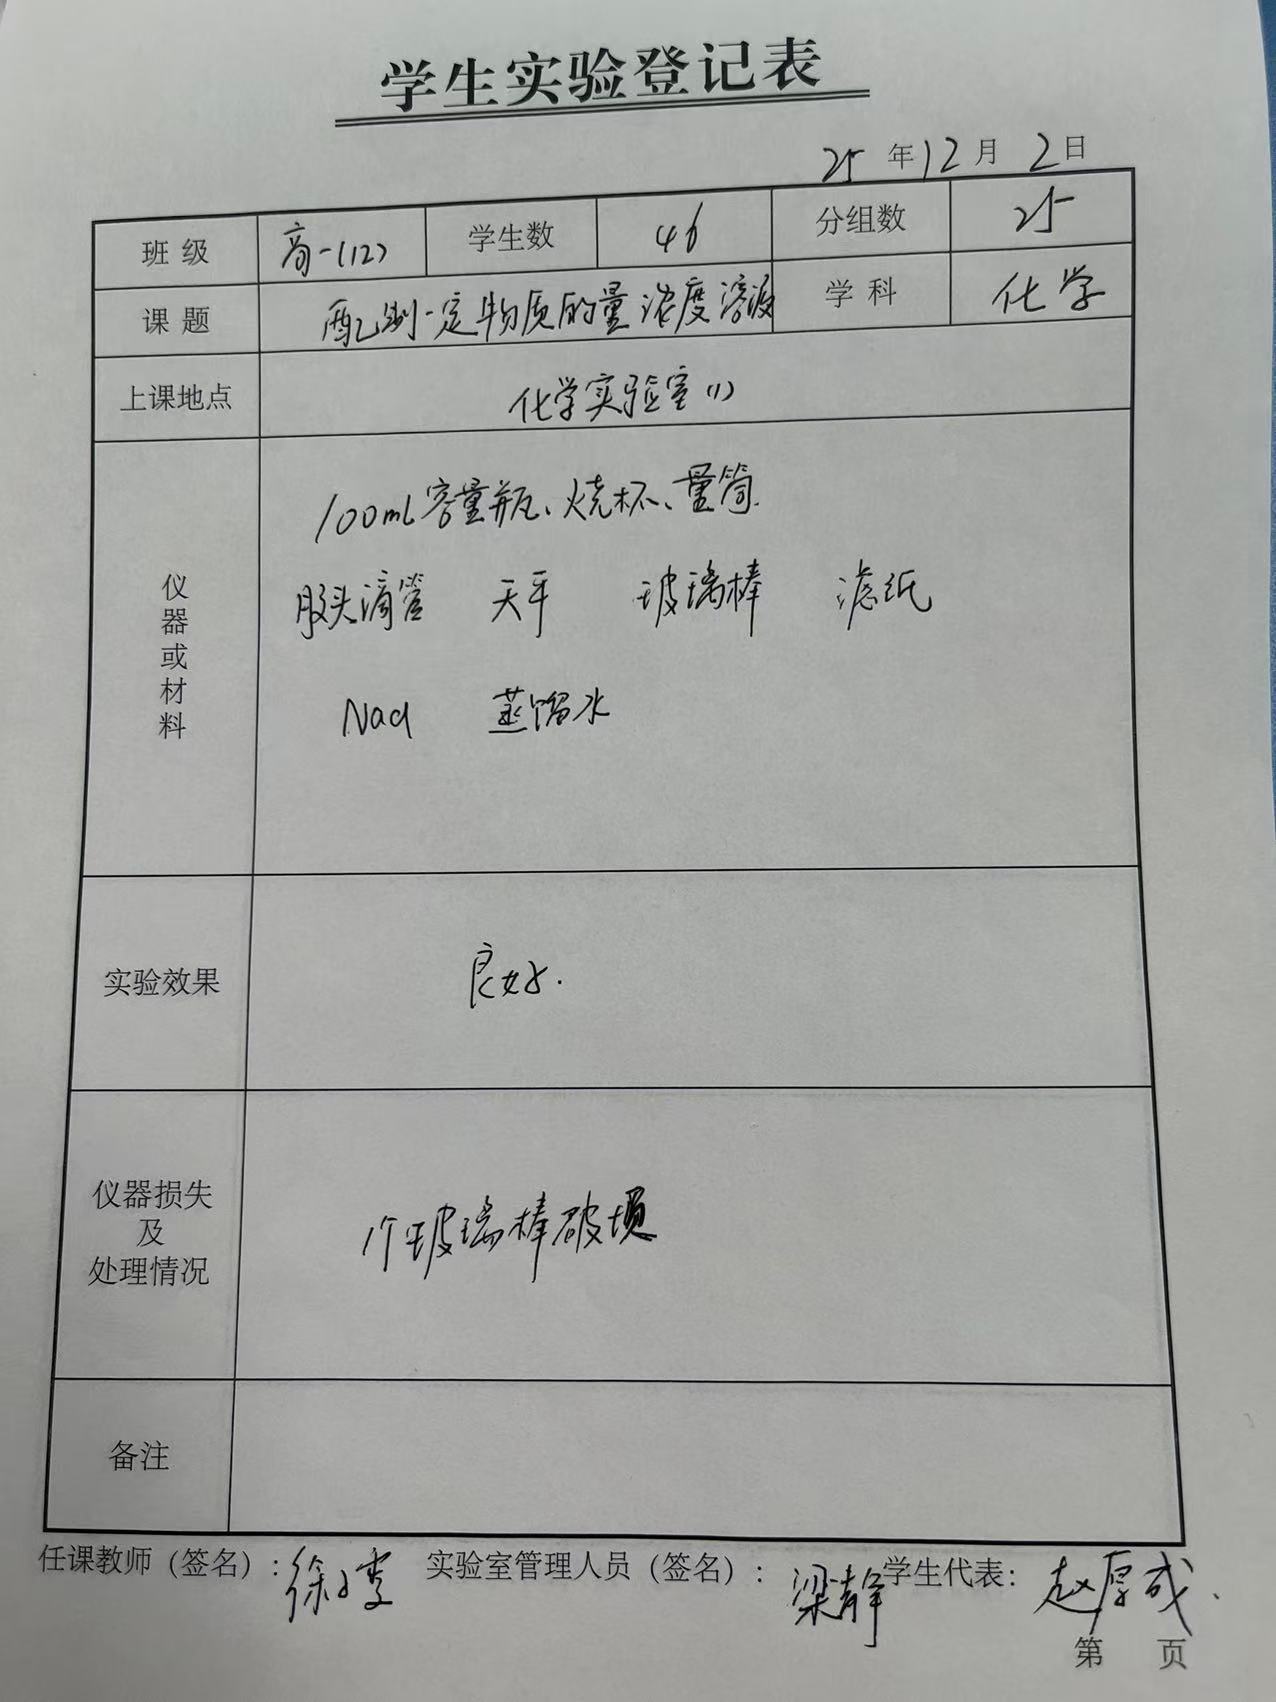 学生实验登记表
25年12月2日
班级 高一(12) 学生数 46 分组数 25
课题 配制一定物质的量浓度溶液 学科 化学
上课地点 化学实验室(1)
仪器或材料
100mL容量瓶、烧杯、量筒.
胶头滴管 天平 玻璃棒 滤纸
NaCl 蒸馏水
实验效果 良好.
仪器损失
及
处理情况
1个玻璃棒破损
备注
任课教师（签名）: 徐 实验室管理人员（签名）: 梁静 学生代表: 赵厚成.
第 页